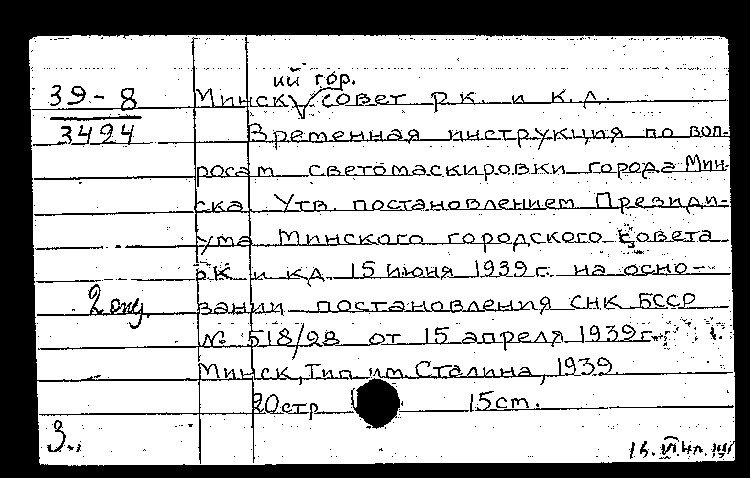 39-8
3424
Минск ий гор. совет р.к. и к.д.
Временная инструкция по воп-
росам светомаскировки города Мин-
ска. Утв. постановлением Президи-
ума Минского городского Совета
рк и кд 15 июня 1939 г. на осно-
вании постановления СНК БССР
№ 518/28 от 15 апреля 1939 г.
Минск, Тип им. Сталина, 1939.
20 стр 15 ст.
2 экз.
3.